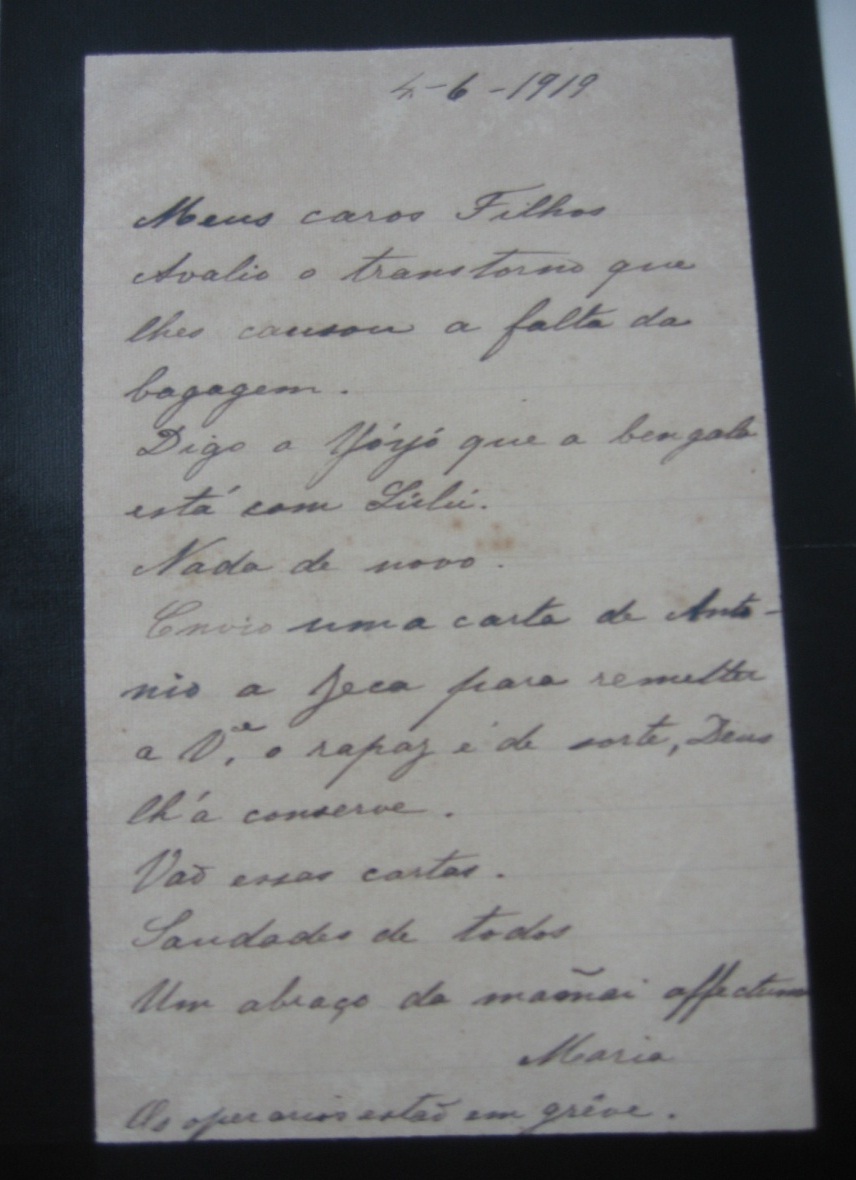 4-6-1919
Meus caros Filhos
Avalio o transtorno que
lhes causou a falta da
bagagem.
Diga a Yóyó que a bengala
está com Lulú.
Nada de novo.
Envio uma carta de Anto-
nio a Zeca para remetter
a V.ce, o rapaz é de sorte, Deus
lh'a conserve.
Vaõ essas cartas.
Saudades de todos
Um abraço da mamãi
Maria
Os operarios estaõ em gréve.